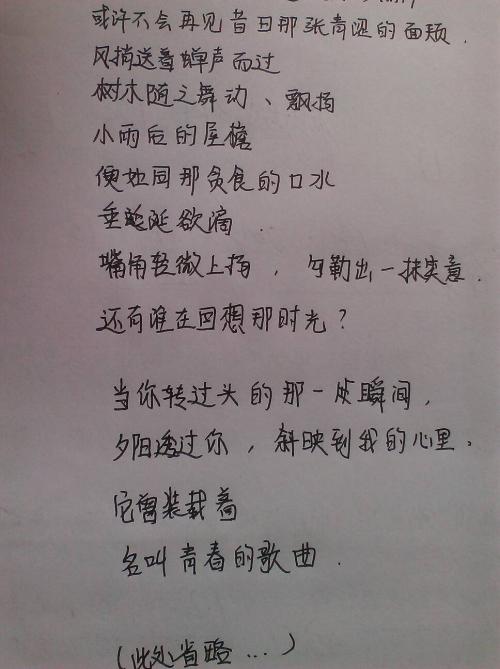 或许不会再见昔日那张青涩的面颊.
风捎送着蝉声而过
树木随之舞动、飘扬
小雨后的屋檐
便如同那贪食的口水
垂涎欲滴.
嘴角轻微上扬，勾勒出一抹笑意.
还有谁在回想那时光？
当你转过头的那一片瞬间，
夕阳透过你，斜映到我的心里。
它曾装载着
名叫青春的歌曲.
(此处省略...)